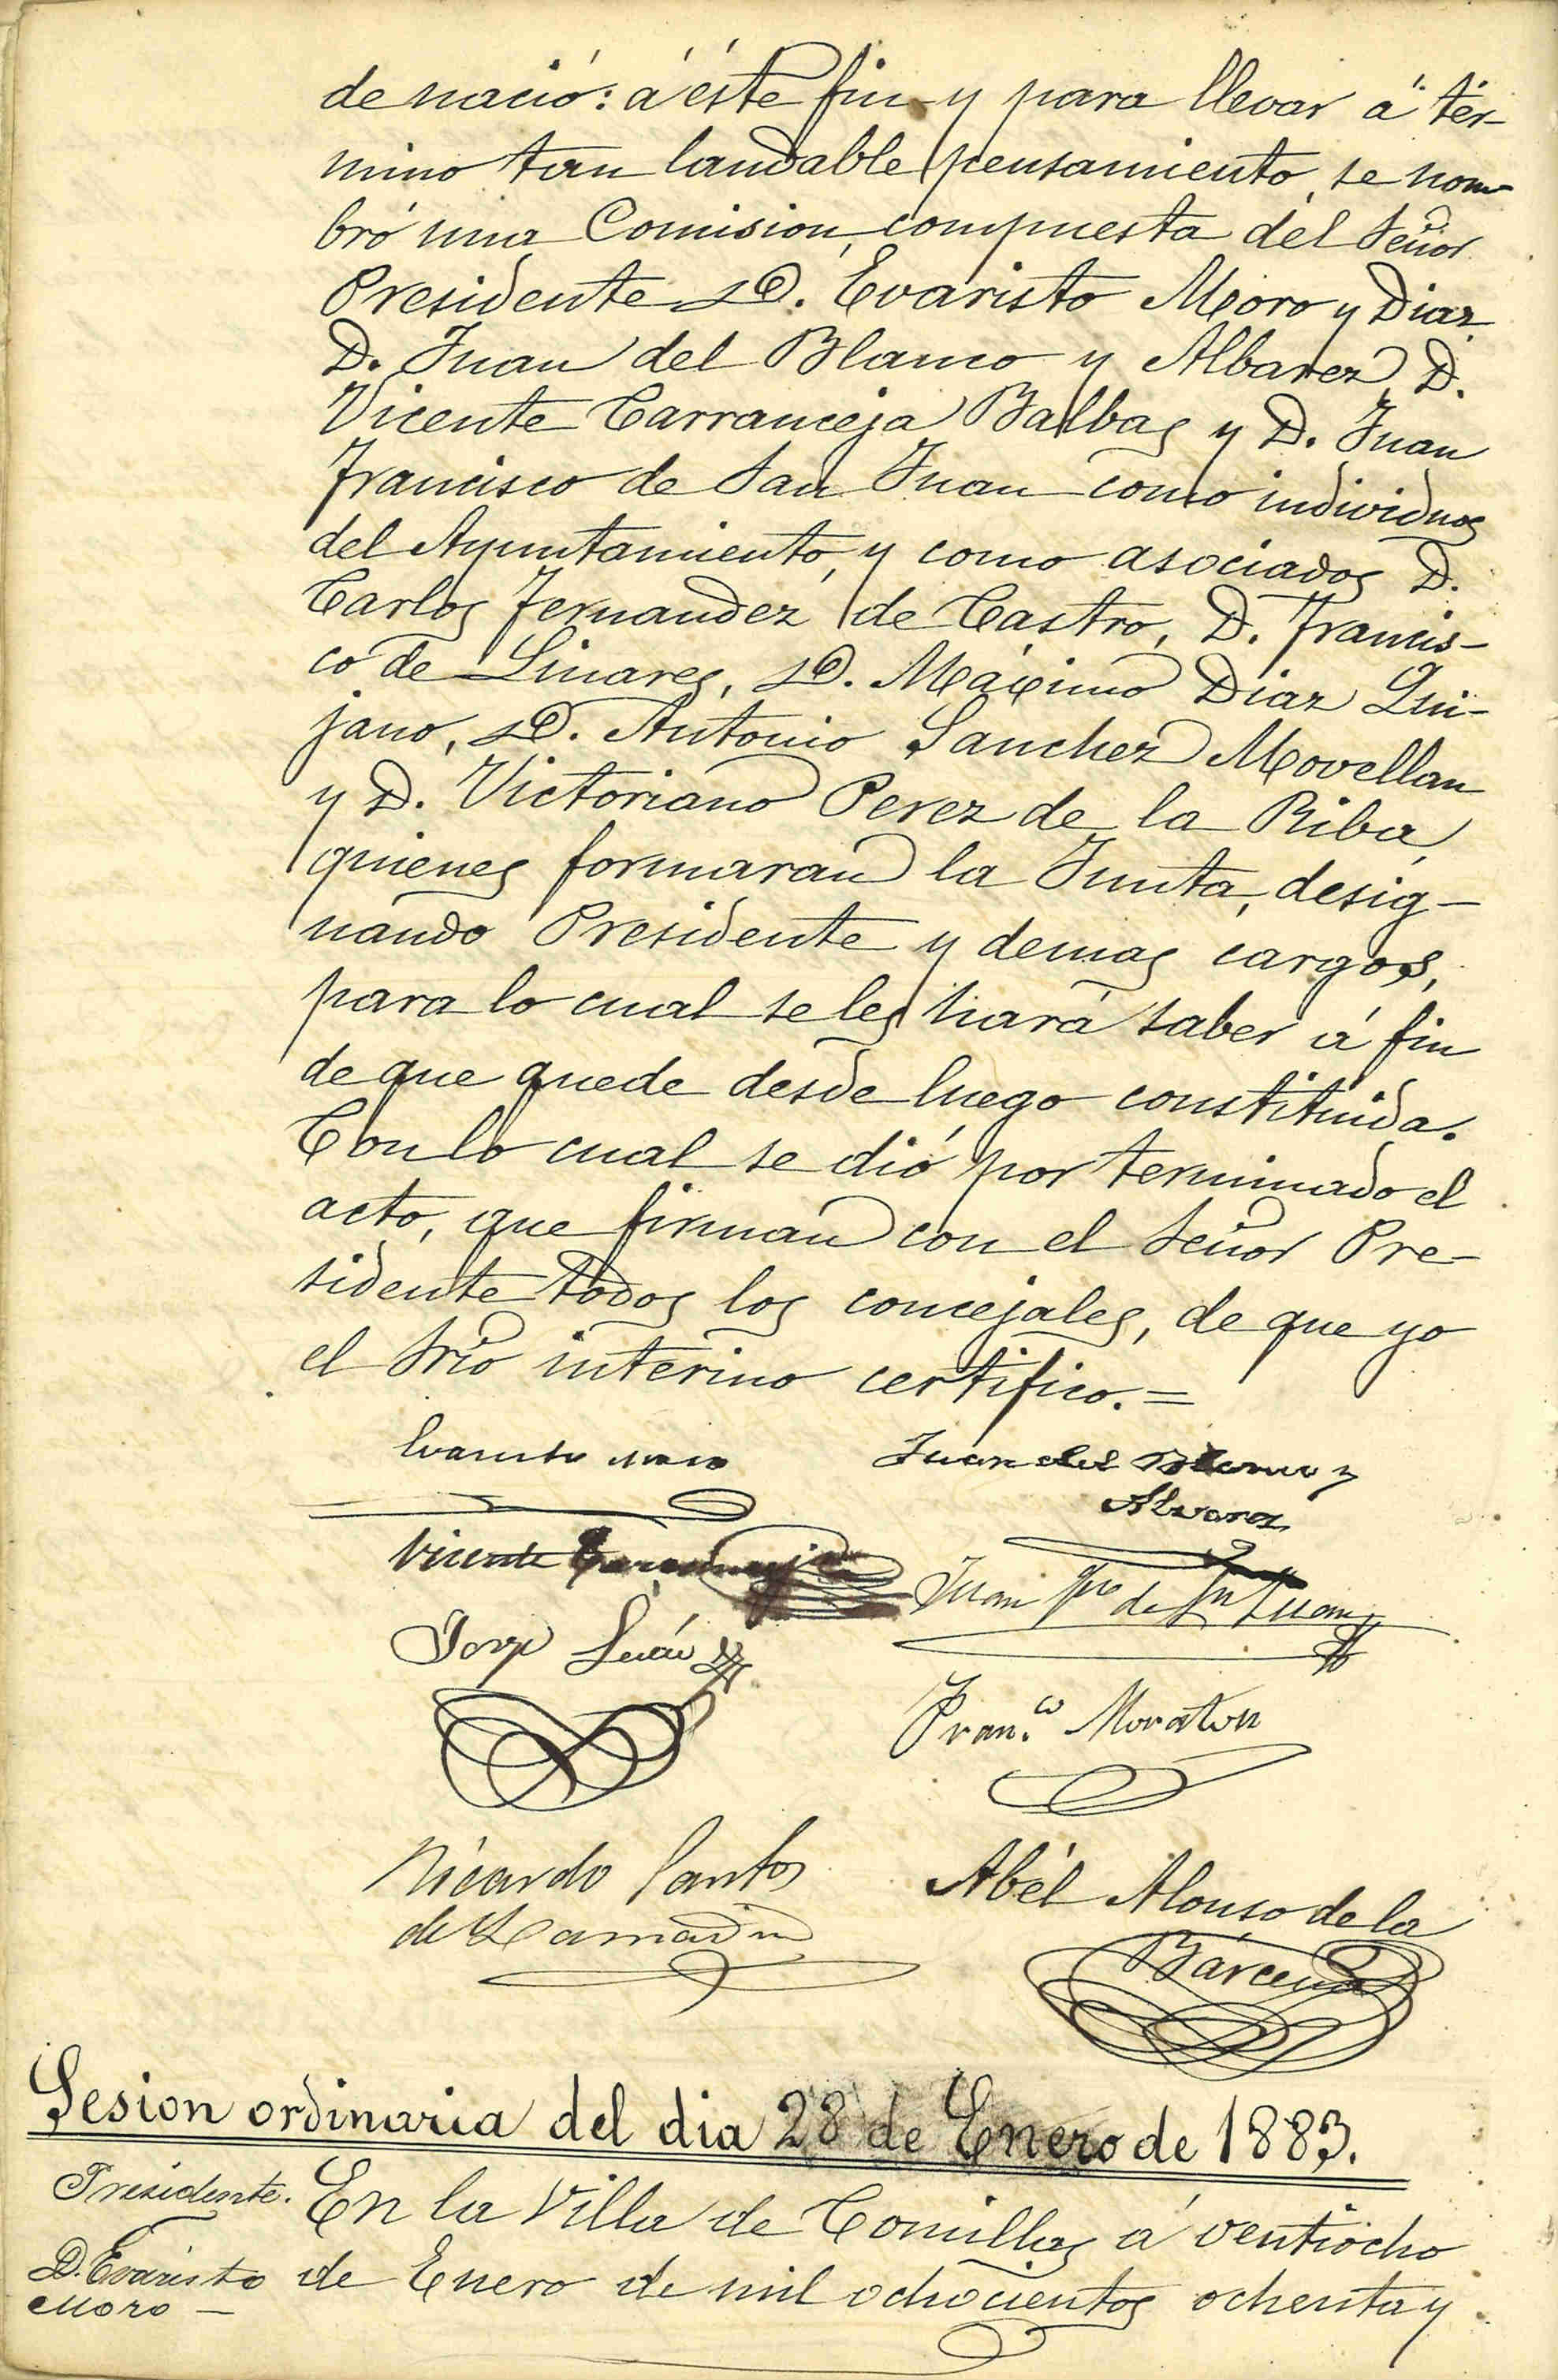 de nació: á éste fin y para llevar á tér-
mino tan laudable pensamiento, se nom-
bró una Comision, compuesta del Señor
Presidente D. Evaristo Moro y Diaz
D. Juan del Blanco y Albarez, D.
Vicente Carranceja Balbas y D. Juan
Francisco de San Juan como individuos
del Ayuntamiento, y como asociados D.
Carlos Fernandez de Castro, D. Francis-
co de Linares, D. Máximo Diaz Qui-
jano, D. Antonio Sanchez Movellan
y D. Victoriano Perez de la Riba,
quienes formaran la Junta, desig-
nando Presidente y demas cargos,
para lo cual se les hará saber á fin
de que quede desde luego constituida.
Con lo cual se dió por terminado el
acto, que firman con el Señor Pre-
sidente todos los concejales, de que yo
el Srio interino certifico.=
Evaristo Moro
Juan del Blanco y
Alvarez
Vicente Carranceja
Juan Fco de Sn Juan
Jorge
Fran.co Moraton
Ricardo Santos
de Lamadrid
Abél Alonso de la
Bárcena
Sesion ordinaria del dia 28 de Enero de 1883.
Presidente.
D. Evaristo
Moro —
En la Villa de Comillas á ventiocho
de Enero de mil ochocientos ochenta y